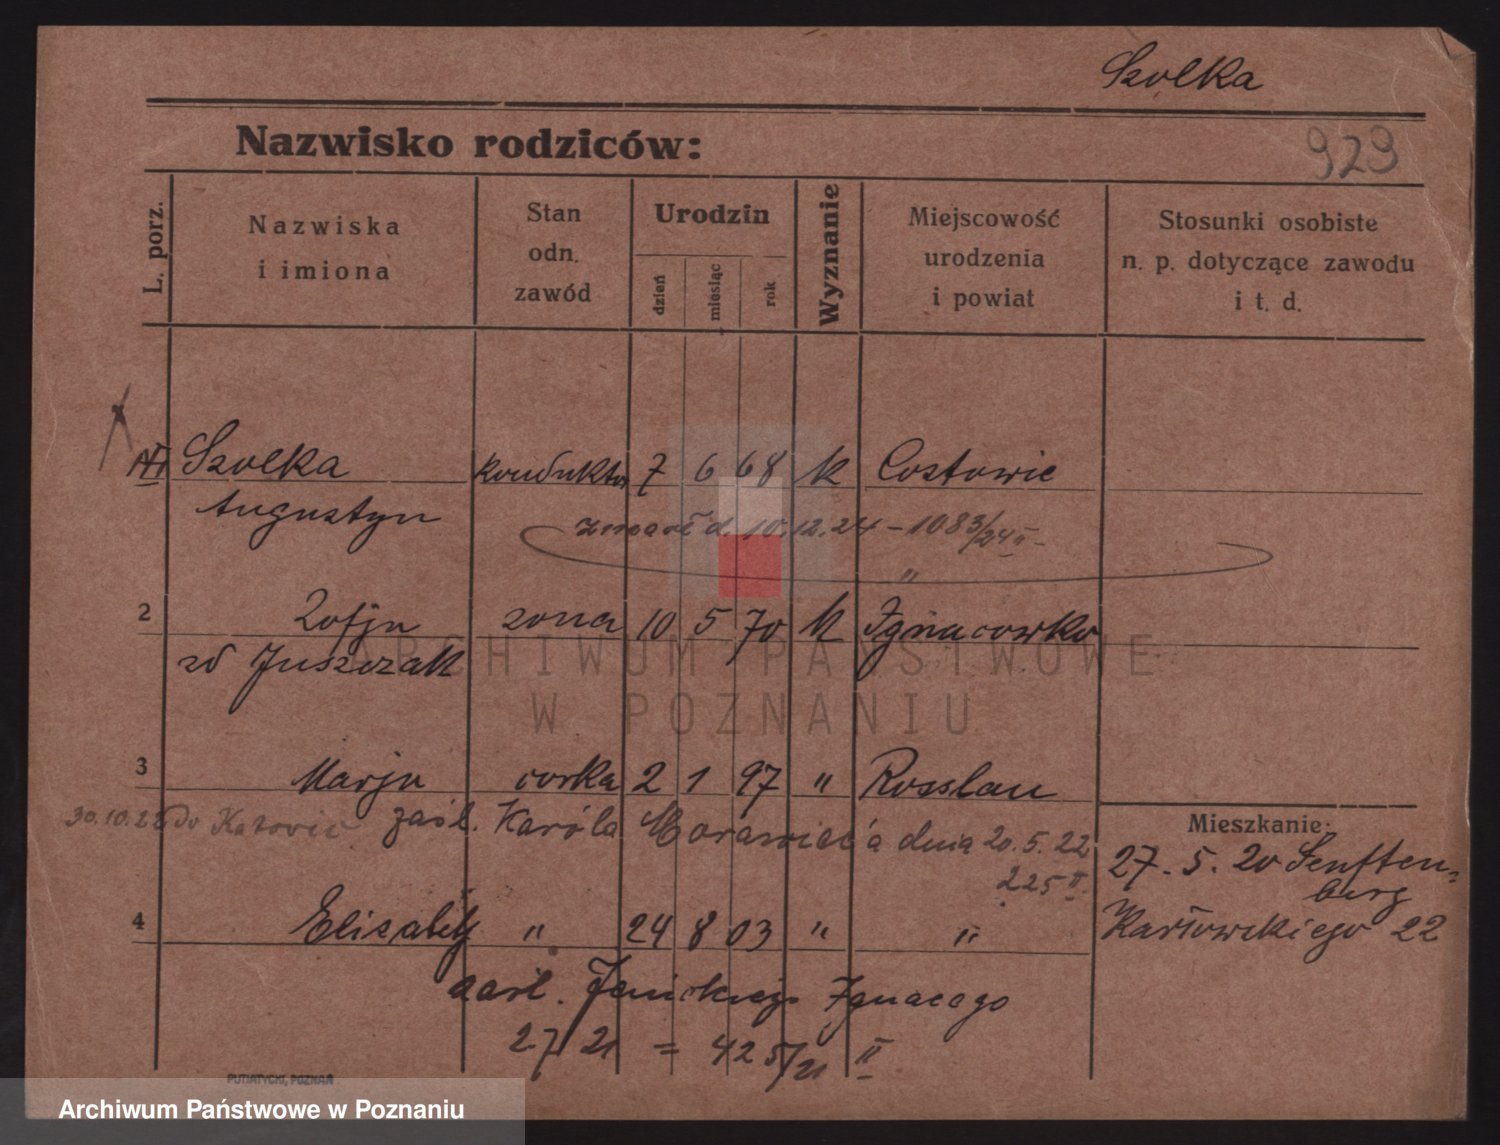 Szolka
Nazwisko rodziców:
923
L. porz.
Nazwiska
i imiona
Stan
odn.
zawód
Urodzin
dzień
miesiąc
rok
Wyznanie
Miejscowość
urodzenia
i powiat
Stosunki osobiste
n. p. dotyczące zawodu
i t. d.
Szolka konduktor 7 6 68 k Costowie
Augustyn
zmarł d. 10.12.24 – 1083/24 II –
2 Zofja zona 10 5 70 k Ignacowko
zd Juszczak
3 Marja corka 2 1 97 " Rosslau
30.10.22 do Katowic zaśl. Karola Morawiec'a dnia 20.5.22
225 II
Mieszkanie:
27.5.20 Senften-
berg
Karłowskiego 22
4 Elisabety " 24 8 03 " "
zasl. Janickiego Ignacego
2.7 21 = 425/21 II
PUTIATYCKI, POZNAŃ
ARCHIWUM PAŃSTWOWE
W POZNANIU
Archiwum Państwowe w Poznaniu